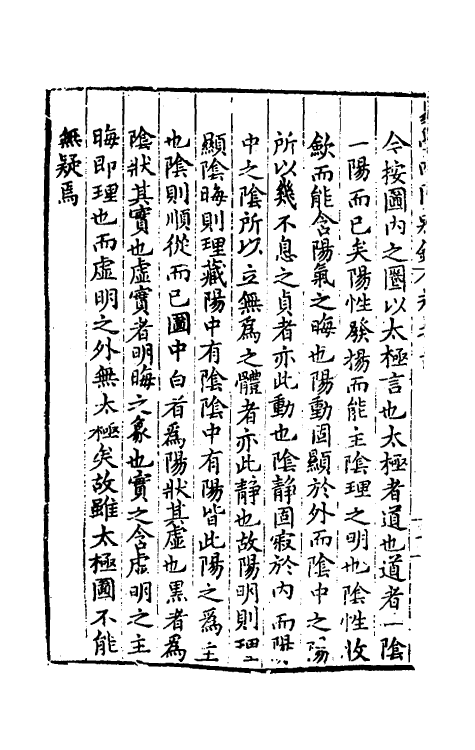 今按圖內之圈以太極言也太極者道也道者一陰
一陽而已矣陽性發揚而能主陰理之明也陰性收
歛而能含陽氣之晦也陽動固顯於外而陰中之陽
所以幾不息之貞者亦此動也陰静固寂於内而陽
中之陰所以立無為之體者亦此静也故陽明則理
顯陰晦則理藏陽中有陰陰中有陽皆此陽之為主
也陰則順從而已圖中白者為陽狀其虚也黒者為
陰狀其實也虚實者明晦之象也實之含虚明之主
晦即理也而虚明之外無太極矣故雖太極圖不能
無疑焉